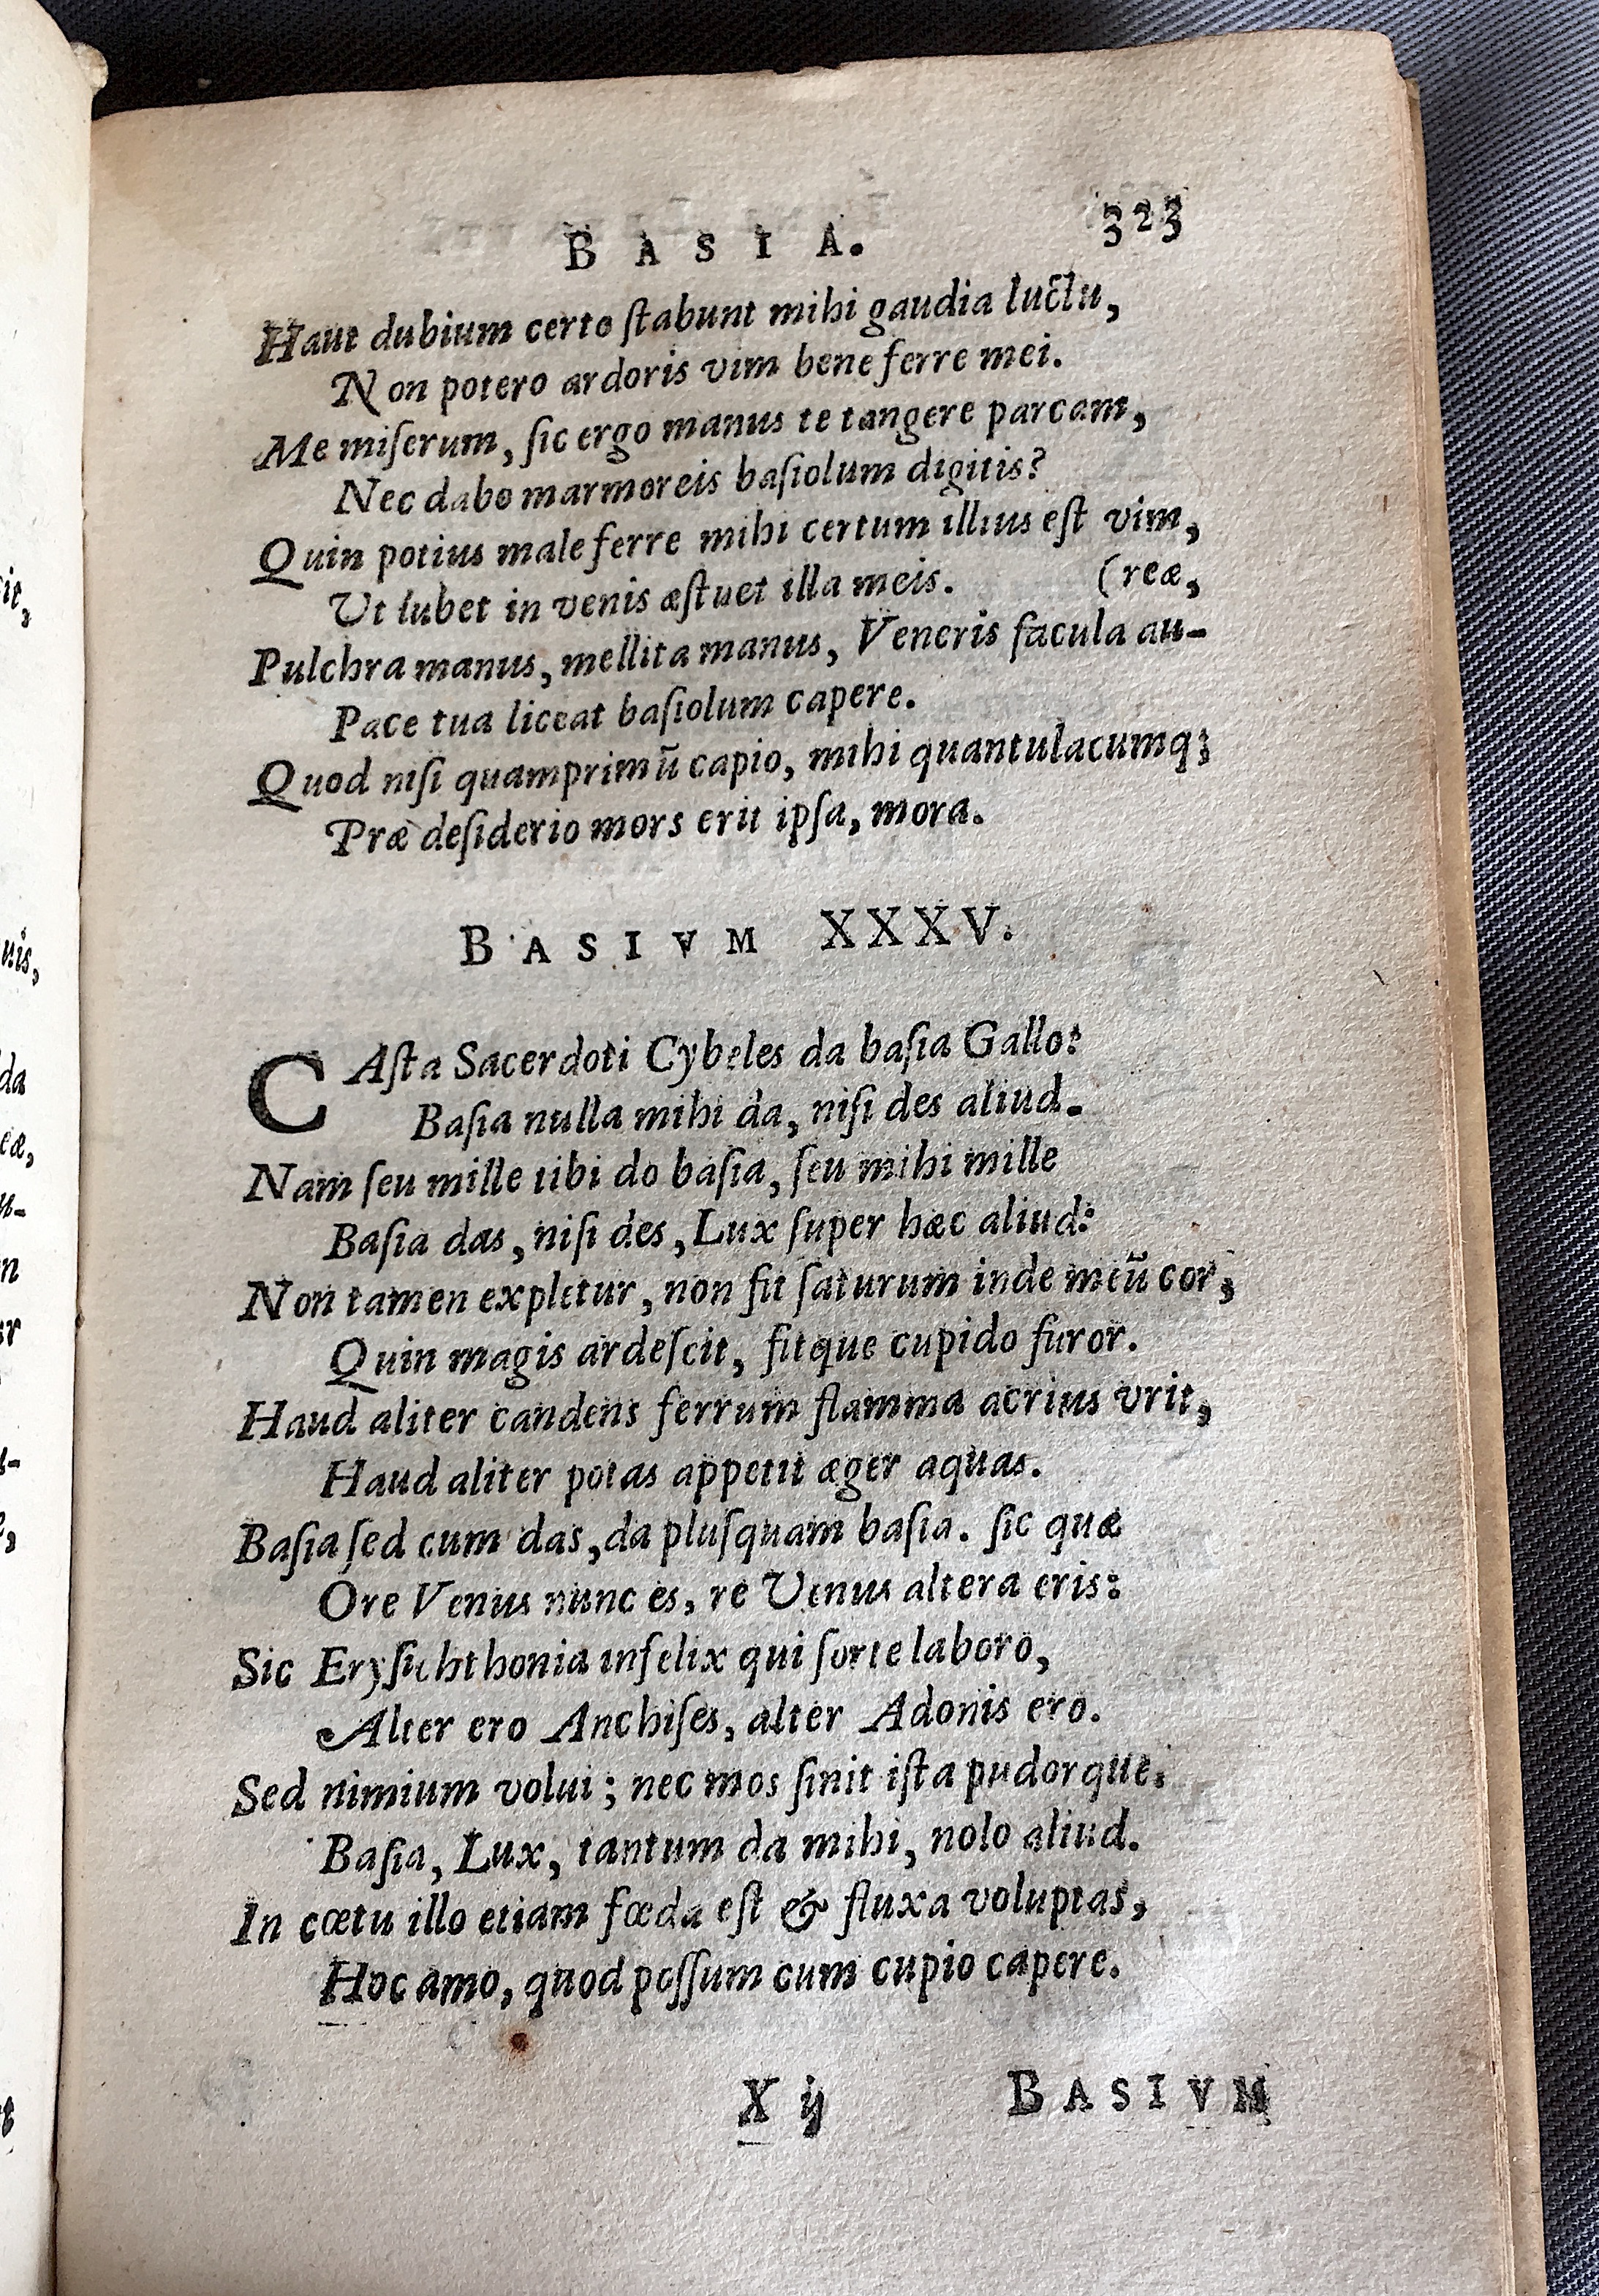 BASIA. 323
Haut dubium certo ſtabunt mihi gaudia luctu,
Non potero ardoris vim bene ferre mei.
Me miſerum, ſic ergo manus te tangere parcam,
Nec dabo marmoreis baſiolum digitis?
Quin potius male ferre mihi certum illius eſt vim,
Ut lubet in venis æſtuet illa meis. (reæ,
Pulchra manus, mellita manus, Veneris facula au-
Pace tua liceat baſiolum capere.
Quod niſi quamprimū capio, mihi quantulacumq;
Præ deſiderio mors erit ipſa, mora.
BASIVM XXXV.
CAſta Sacerdoti Cybeles da baſia Gallo:
Baſia nulla mihi da, niſi des aliud.
Nam ſeu mille tibi do baſia, ſeu mihi mille
Baſia das, niſi des, Lux ſuper hæc aliud:
Non tamen expletur, non fit ſaturum inde meū cor,
Quin magis ardeſcit, fitque cupido furor.
Haud aliter candens ferrum flamma acrius vrit,
Haud aliter potas appetit æger aquas.
Baſia ſed cum das, da pluſquam baſia. ſic quæ
Ore Venus nunc es, re Venus altera eris:
Sic Eryſichthonia infelix qui ſorte laboro,
Alter ero Anchiſes, alter Adonis ero.
Sed nimium volui; nec mos ſinit iſta pudorque.
Baſia, Lux, tantum da mihi, nolo aliud.
In cœtu illo etiam fœda eſt & fluxa voluptas,
Hoc amo, quod poſſum cum cupio capere.
X ij BASIVM
it,
uis,
da
eæ,
u-